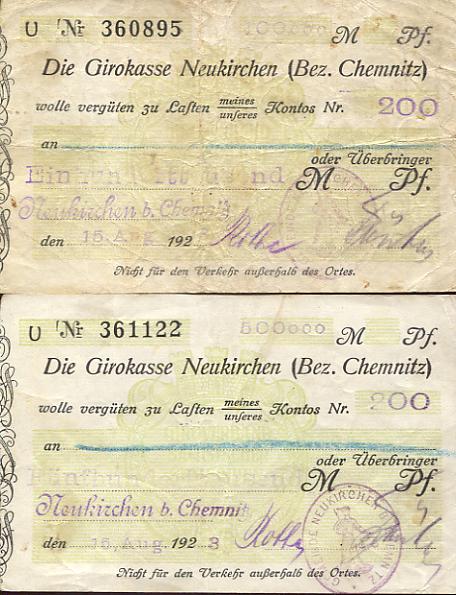 U Nr 360895 100000 M Pf.
Die Girokasse Neukirchen (Bez. Chemnitz)
wolle vergüten zu Lasten meines
unseres Kontos Nr. 200
an
oder Überbringer
Einhunderttausend M Pf.
Neukirchen b. Chemnitz
den 15. Aug 192 Rothe
Nicht für den Verkehr außerhalb des Ortes.
U Nr 361122 500000 M Pf.
Die Girokasse Neukirchen (Bez. Chemnitz)
wolle vergüten zu Lasten meines
unseres Kontos Nr. 200
an
oder Überbringer
M Pf.
Neukirchen b. Chemnitz
NEUKIRCHEN
den 15. Aug 192 3 Rothe
Nicht für den Verkehr außerhalb des Ortes.